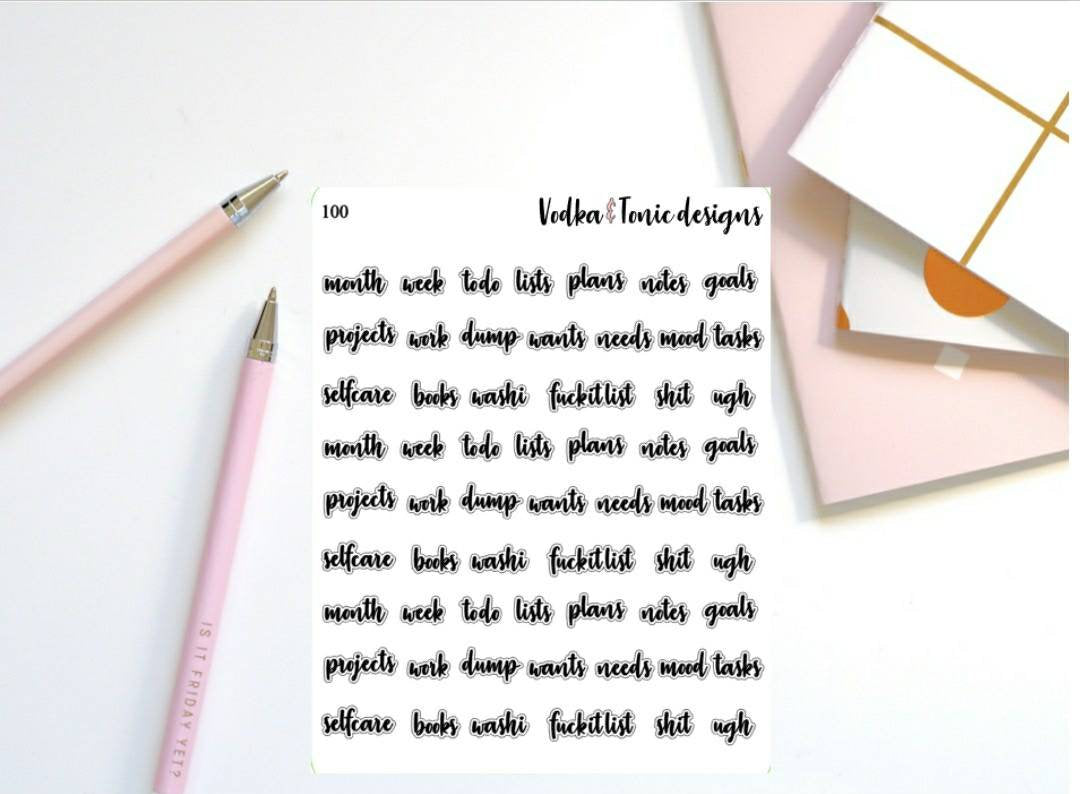 100
Vodka & Tonic designs
month week todo lists plans notes goals
projects work dump wants needs mood tasks
selfcare books washi fuckitlist shit ugh
month week todo lists plans notes goals
projects work dump wants needs mood tasks
selfcare books washi fuckitlist shit ugh
month week todo lists plans notes goals
projects work dump wants needs mood tasks
selfcare books washi fuckitlist shit ugh
IS IT FRIDAY YET?